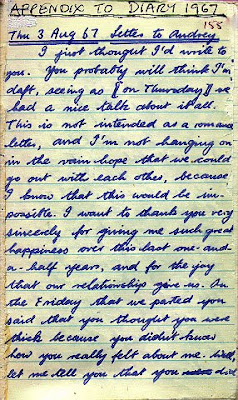 APPENDIX TO DIARY 1967
155
Thu 3 Aug 67 Letter to Audrey
I just thought I'd write to
you. You probably will think I'm
daft, seeing as [on Thursday] we
had a nice talk about it all.
This is not intended as a romance
letter, and I'm not hanging on
in the vain hope that we could
go out with each other, because
I know that this would be im-
possible. I want to thank you very
sincerely for giving me such great
happiness over this last one-and
a-half years, and for the joy
that our relationship gave us. On
the Friday that we parted you
said that you thought you were
thick because you didn't know
how you really felt about me. Well,
let me tell you that you did